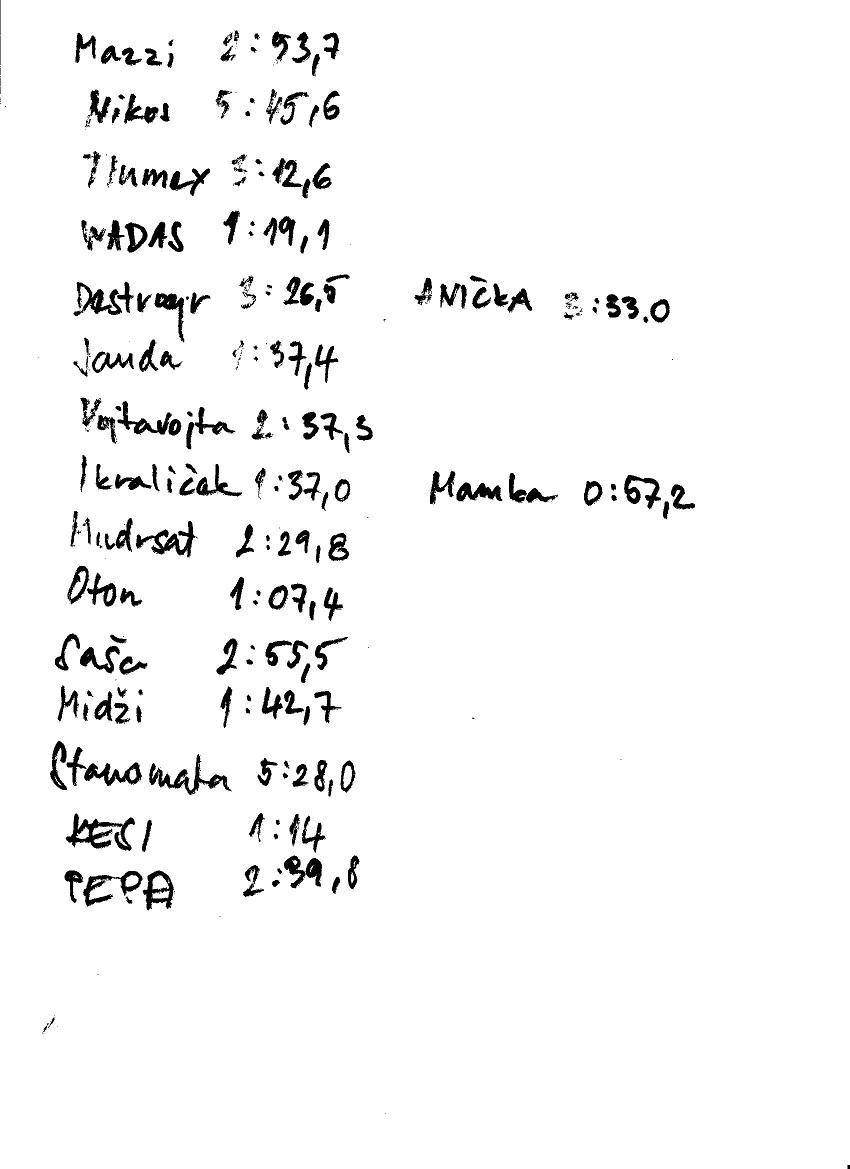 Mazzi 2:53,7
Nikos 5:45,6
Tlumex 3:12,6
WADAS 1:19,1
3:26,5 ANIČKA 3:33.0
Janda 1:37,4
Vojtavojta 2:37,3
Ikraliček 1:37,0 Mamka 0:57,2
Mudrsat 2:29,8
Oton 1:07,4
Saša 2:55,5
Midži 1:42,7
Stanomata 5:28,0
KESI 1:14
PEPA 2:39,8